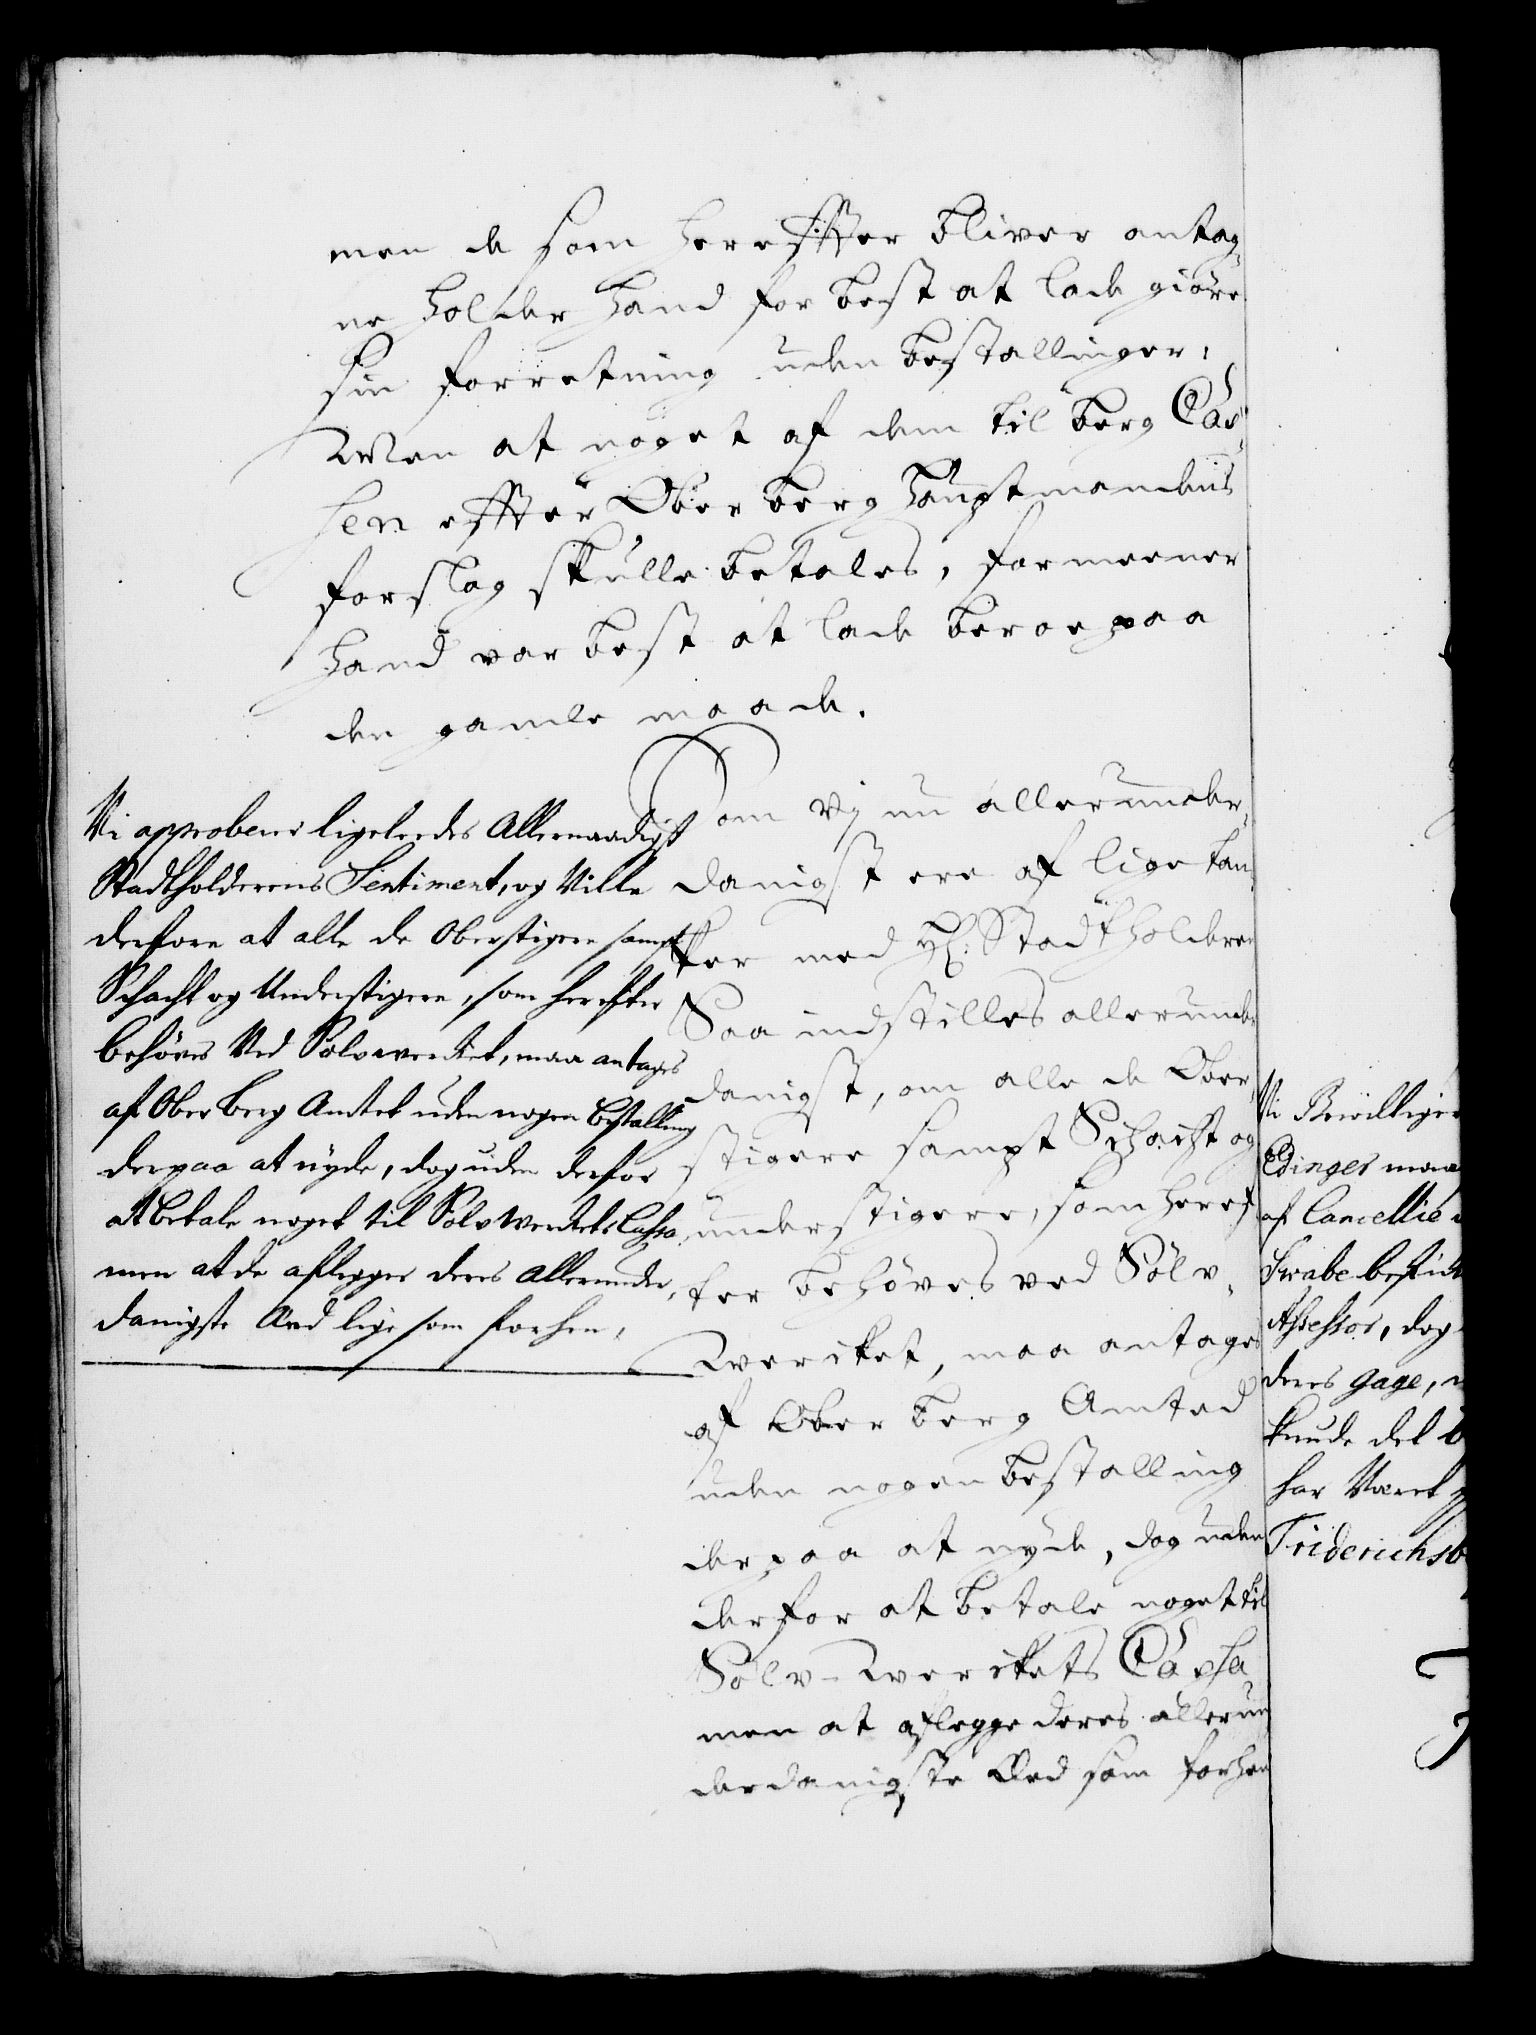 men de som herefter bliver antag-
ne holder hand for best at lade giöre
sin forretning uden bestallinger,
Men at noget af dem til berg Cas-
sen effter Ober berg hauptmandens
forslag skulle betales, formeener
hand var best at lade beroe paa
den gamle maade.
Som vj nu allerunder-
danigst ere af lige tan-
ker med H: Stadtholderen
Saa indstilles allerunder
danigst, om alle de Ober-
stigere sampt Schacht og
understigere, som heref-
ter behöves ved Sölv-
Wercket, maa antages
af Ober berg Amted
uden nogen bestalling
derpaa at nyde, dog uden
derfor at betale noget til
Sölv-Werckets Cassa
men at aflegge deres allerun
derdanigste Eed som forhen
Vi approberer ligeleedes Allernaadigst
Stadtholderens Sentiment, og Ville
derfore at alle de Oberstigere sampt
Schacht og Understigere, som herefter
behöves Ved Sölvwercket, maa antages
af Ober Berg Amtet uden nogen Bestalling
derpaa at nyde, dog uden derfor
at betale noget til SölvWerckets Cassa,
men at de aflegger deres allerunder-
danigste Æed lige som forhen,
Vi Bevilliger
Edinger maa
af Cancellie
Swabe
Assessor, dog
deres gage,
kunde det
har Været
Friderichsb